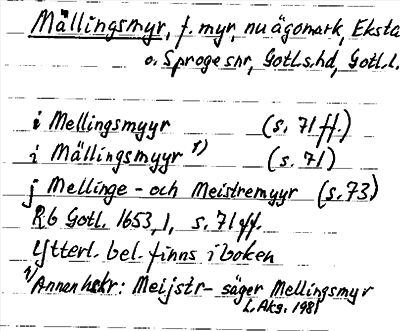 Mällingsmyr, f. myr, nu ägomark, Eksta
o. Sproge snr, Gotl.s. hd, Gotl. l.
i Mellingsmyyr (s. 71 ff.)
i Mällingsmyyr 1) (s. 71)
j Mellinge- och Meistremyyr (s. 73)
Rb Gotl. 1653, 1, s. 71 ff.
Ytterl. bel. finns i boken
1) Annan hskr: Meijstr- säger Mellingsmyr
L. Akg. 1981